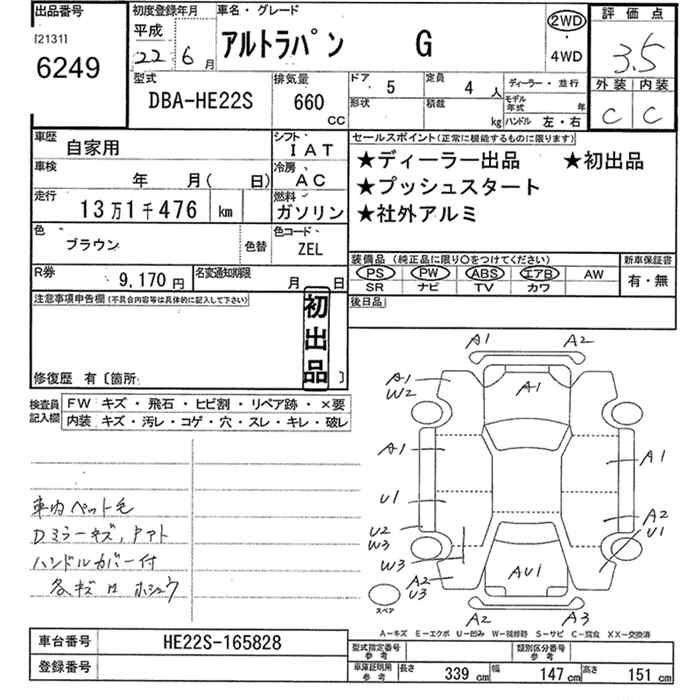 出品番号
[2131]
6249
初度登録年月
平成
22年 6月
車名・グレード
アルトラパン G
2WD
・
4WD
評価点
3.5
外装 内装
C C
型式
DBA-HE22S
排気量
660
CC
ドア
5
定員
4 人
形状
積載
kg
ディーラー・並行
モデル年式 年
ハンドル 左・右
車歴
自家用
シフト
IAT
車検
年 月( 日)
冷房
AC
走行
13万1千476 km
燃料
ガソリン
色
ブラウン
色替
色コード
ZEL
R券
9,170円
名変通知期限
月 日
セールスポイント(正常に機能するものに限ります)
★ディーラー出品 ★初出品
★プッシュスタート
★社外アルミ
装備品(純正品に限り○をつけてください)
新車保証書
PS PW ABS エアB AW
SR ナビ TV カワ
有・無
後日品
注意事項申告欄(不具合内容等は具体的に記入して下さい)
初出品
修復歴 有〔箇所 〕
検査員記入欄
FW キズ・飛石・ヒビ割・リペア跡・×要
内装 キズ・汚レ・コゲ・穴・スレ・キレ・破レ
車内ペット毛
Dミラーキズ,
ハンドルカバー付
各キズ ホシュウ
A1 A2
A1
W2
A1
A1 A1
U1
A2
U1
U2
W3
W3
A2
U3
AU1
スペア
A2 A3
A-キズ E-エクボ U-凹み W-補修跡 S-サビ C-腐食 XX-交換済
車台番号
HE22S-165828
登録番号
型式指定番号
参考
類別区分番号
参考
車庫証明用
参考
長さ 339 cm 幅 147 cm 高さ 151 cm